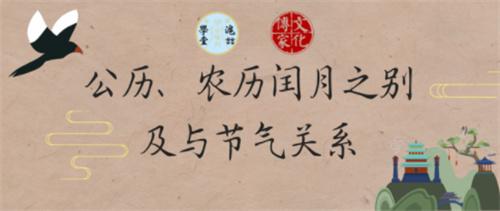 學堂
文化傳家
公历、农历闰月之别
及与节气关系